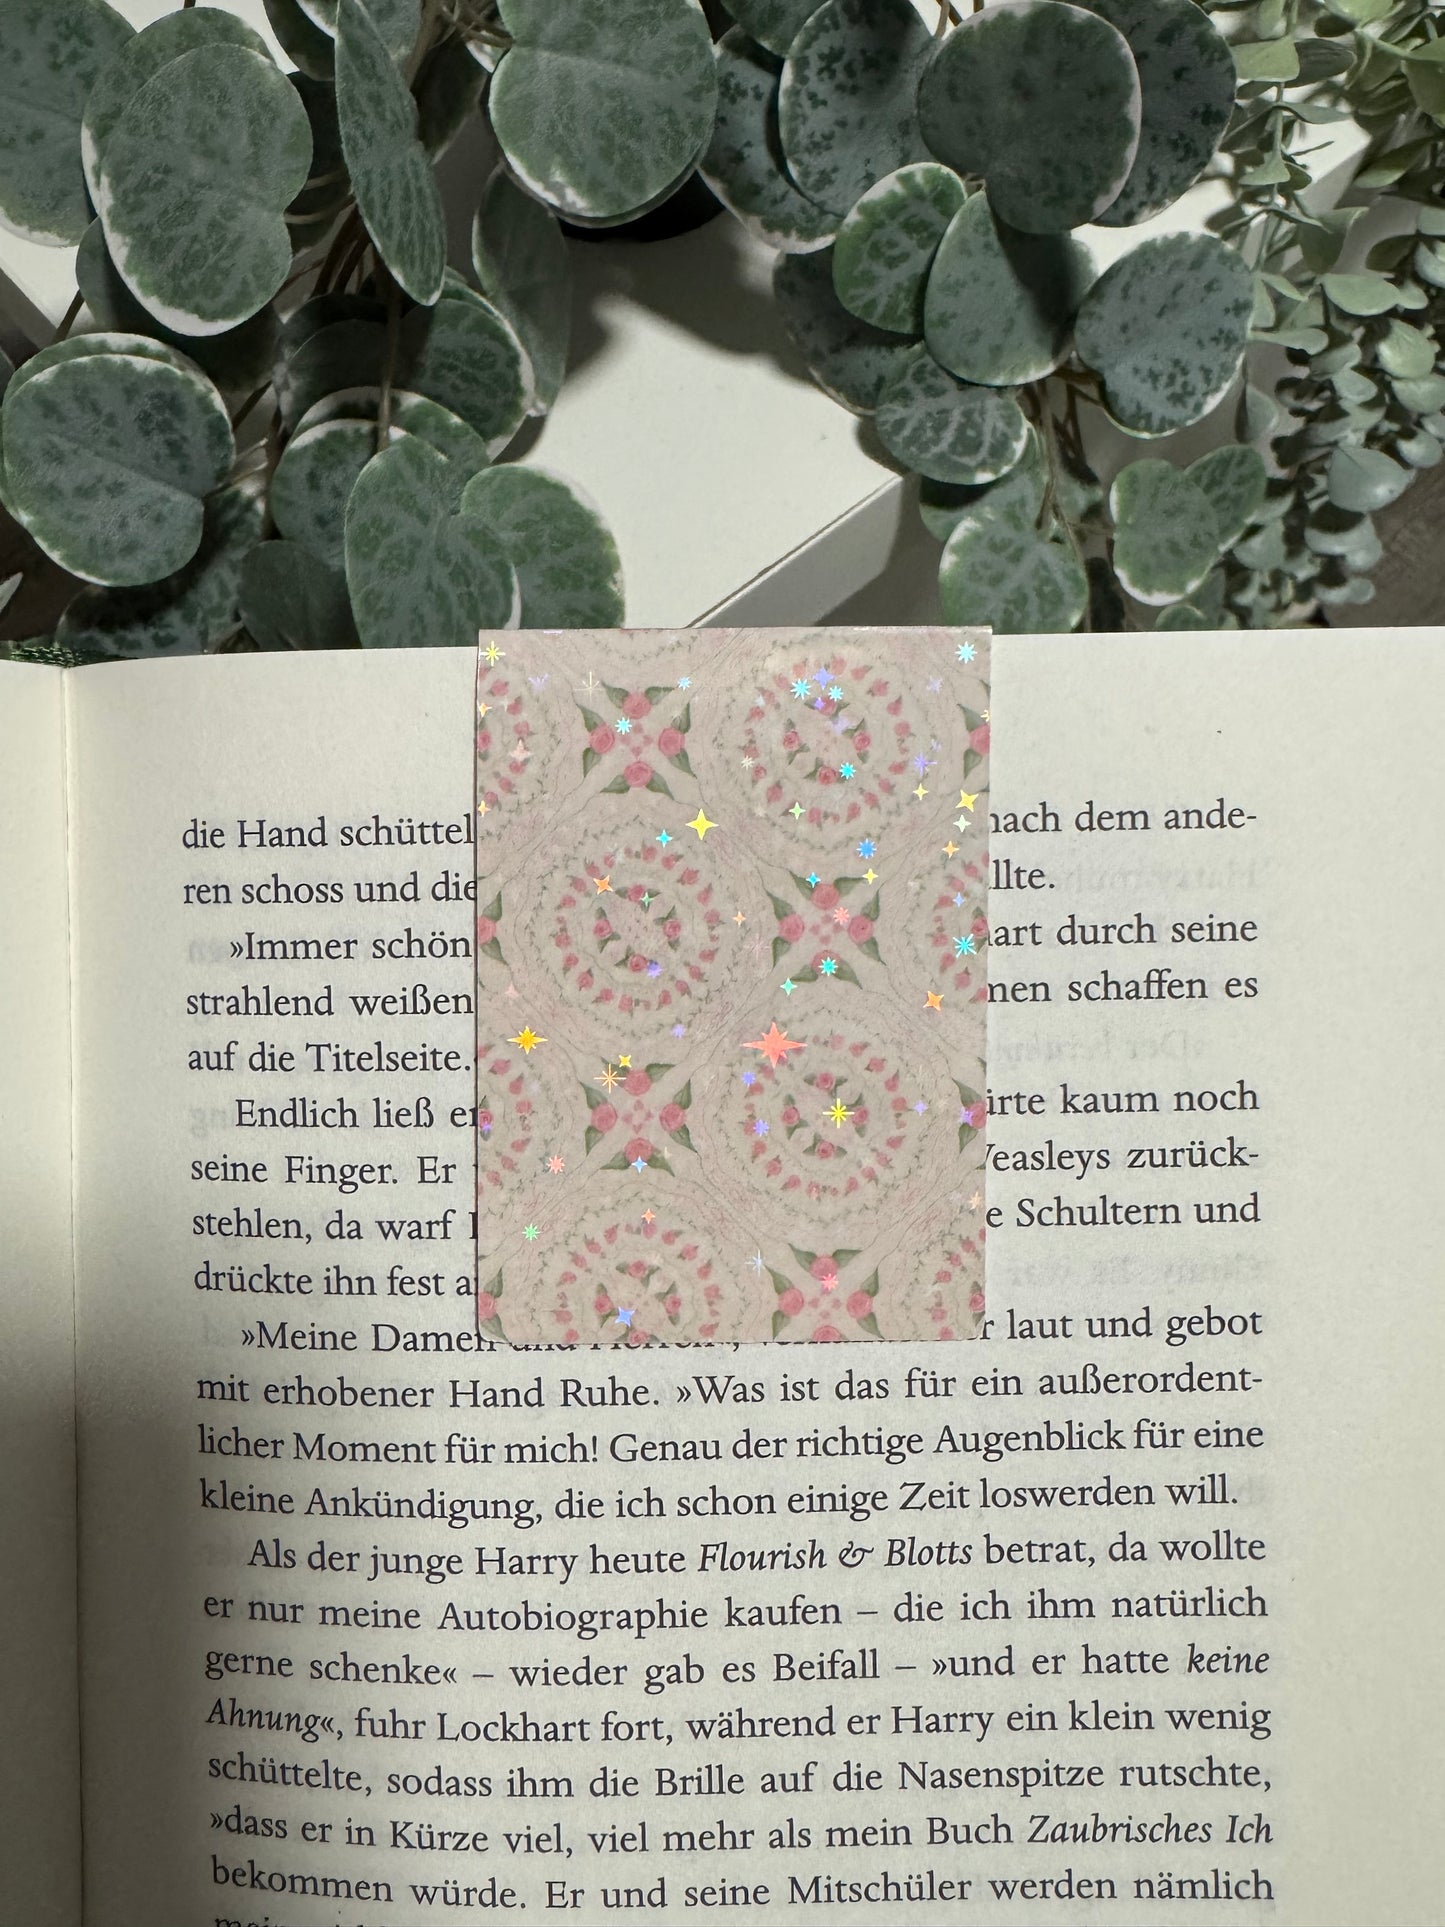 die Hand schüttel nach dem ande-
ren schoss und die
»Immer schön durch seine
strahlend weißen schaffen es
auf die Titelseite.
Endlich ließ kaum noch
seine Finger. Er Weasleys zurück-
stehlen, da warf Schultern und
drückte ihn fest
»Meine Damen und Herren«, laut und gebot
mit erhobener Hand Ruhe. »Was ist das für ein außerordent-
licher Moment für mich! Genau der richtige Augenblick für eine
kleine Ankündigung, die ich schon einige Zeit loswerden will.
Als der junge Harry heute Flourish & Blotts betrat, da wollte
er nur meine Autobiographie kaufen – die ich ihm natürlich
gerne schenke« – wieder gab es Beifall – »und er hatte keine
Ahnung«, fuhr Lockhart fort, während er Harry ein klein wenig
schüttelte, sodass ihm die Brille auf die Nasenspitze rutschte,
»dass er in Kürze viel, viel mehr als mein Buch Zaubrisches Ich
bekommen würde. Er und seine Mitschüler werden nämlich